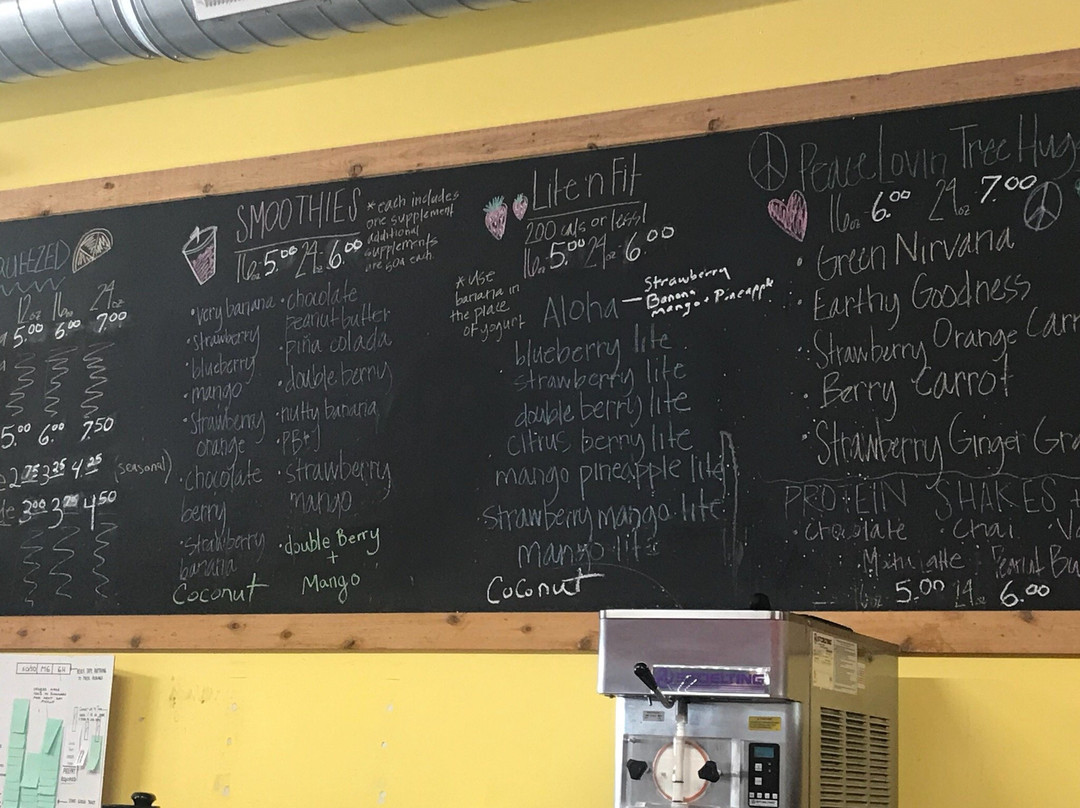 SQUEEZED
12oz 16oz 24oz
5.00 6.00 7.00
5.00 6.00 7.50
2.75 3.25 4.25 (seasonal)
3.00 3.75 4.50
SMOOTHIES
16oz 5.00 24oz 6.00
*each includes
one supplement
additional
supplements
are 50¢ each
• very banana
• strawberry
• blueberry
• mango
• strawberry
orange
• chocolate
berry
• strawberry
banana
Coconut
• chocolate
peanut butter
• piña colada
• double berry
• nutty banana
• PB+J
• strawberry
mango
• double Berry
+
Mango
Lite 'n Fit
200 cals or less!
16oz 5.00 24oz 6.00
*use
banana in
the place
of yogurt
Aloha — Strawberry
Banana
mango + Pineapple
blueberry lite
strawberry lite
double berry lite
citrus berry lite
mango pineapple lite
strawberry mango lite
mango lite
Coconut
Peace Lovin Tree Hug
16oz 6.00 24oz 7.00
• Green Nirvana
• Earthy Goodness
• Strawberry Orange Carr
• Berry Carrot
• Strawberry Ginger Gra
PROTEIN SHAKES
• Chocolate • Chai • Va
Peanut Bu
16oz 5.00 24oz 6.00